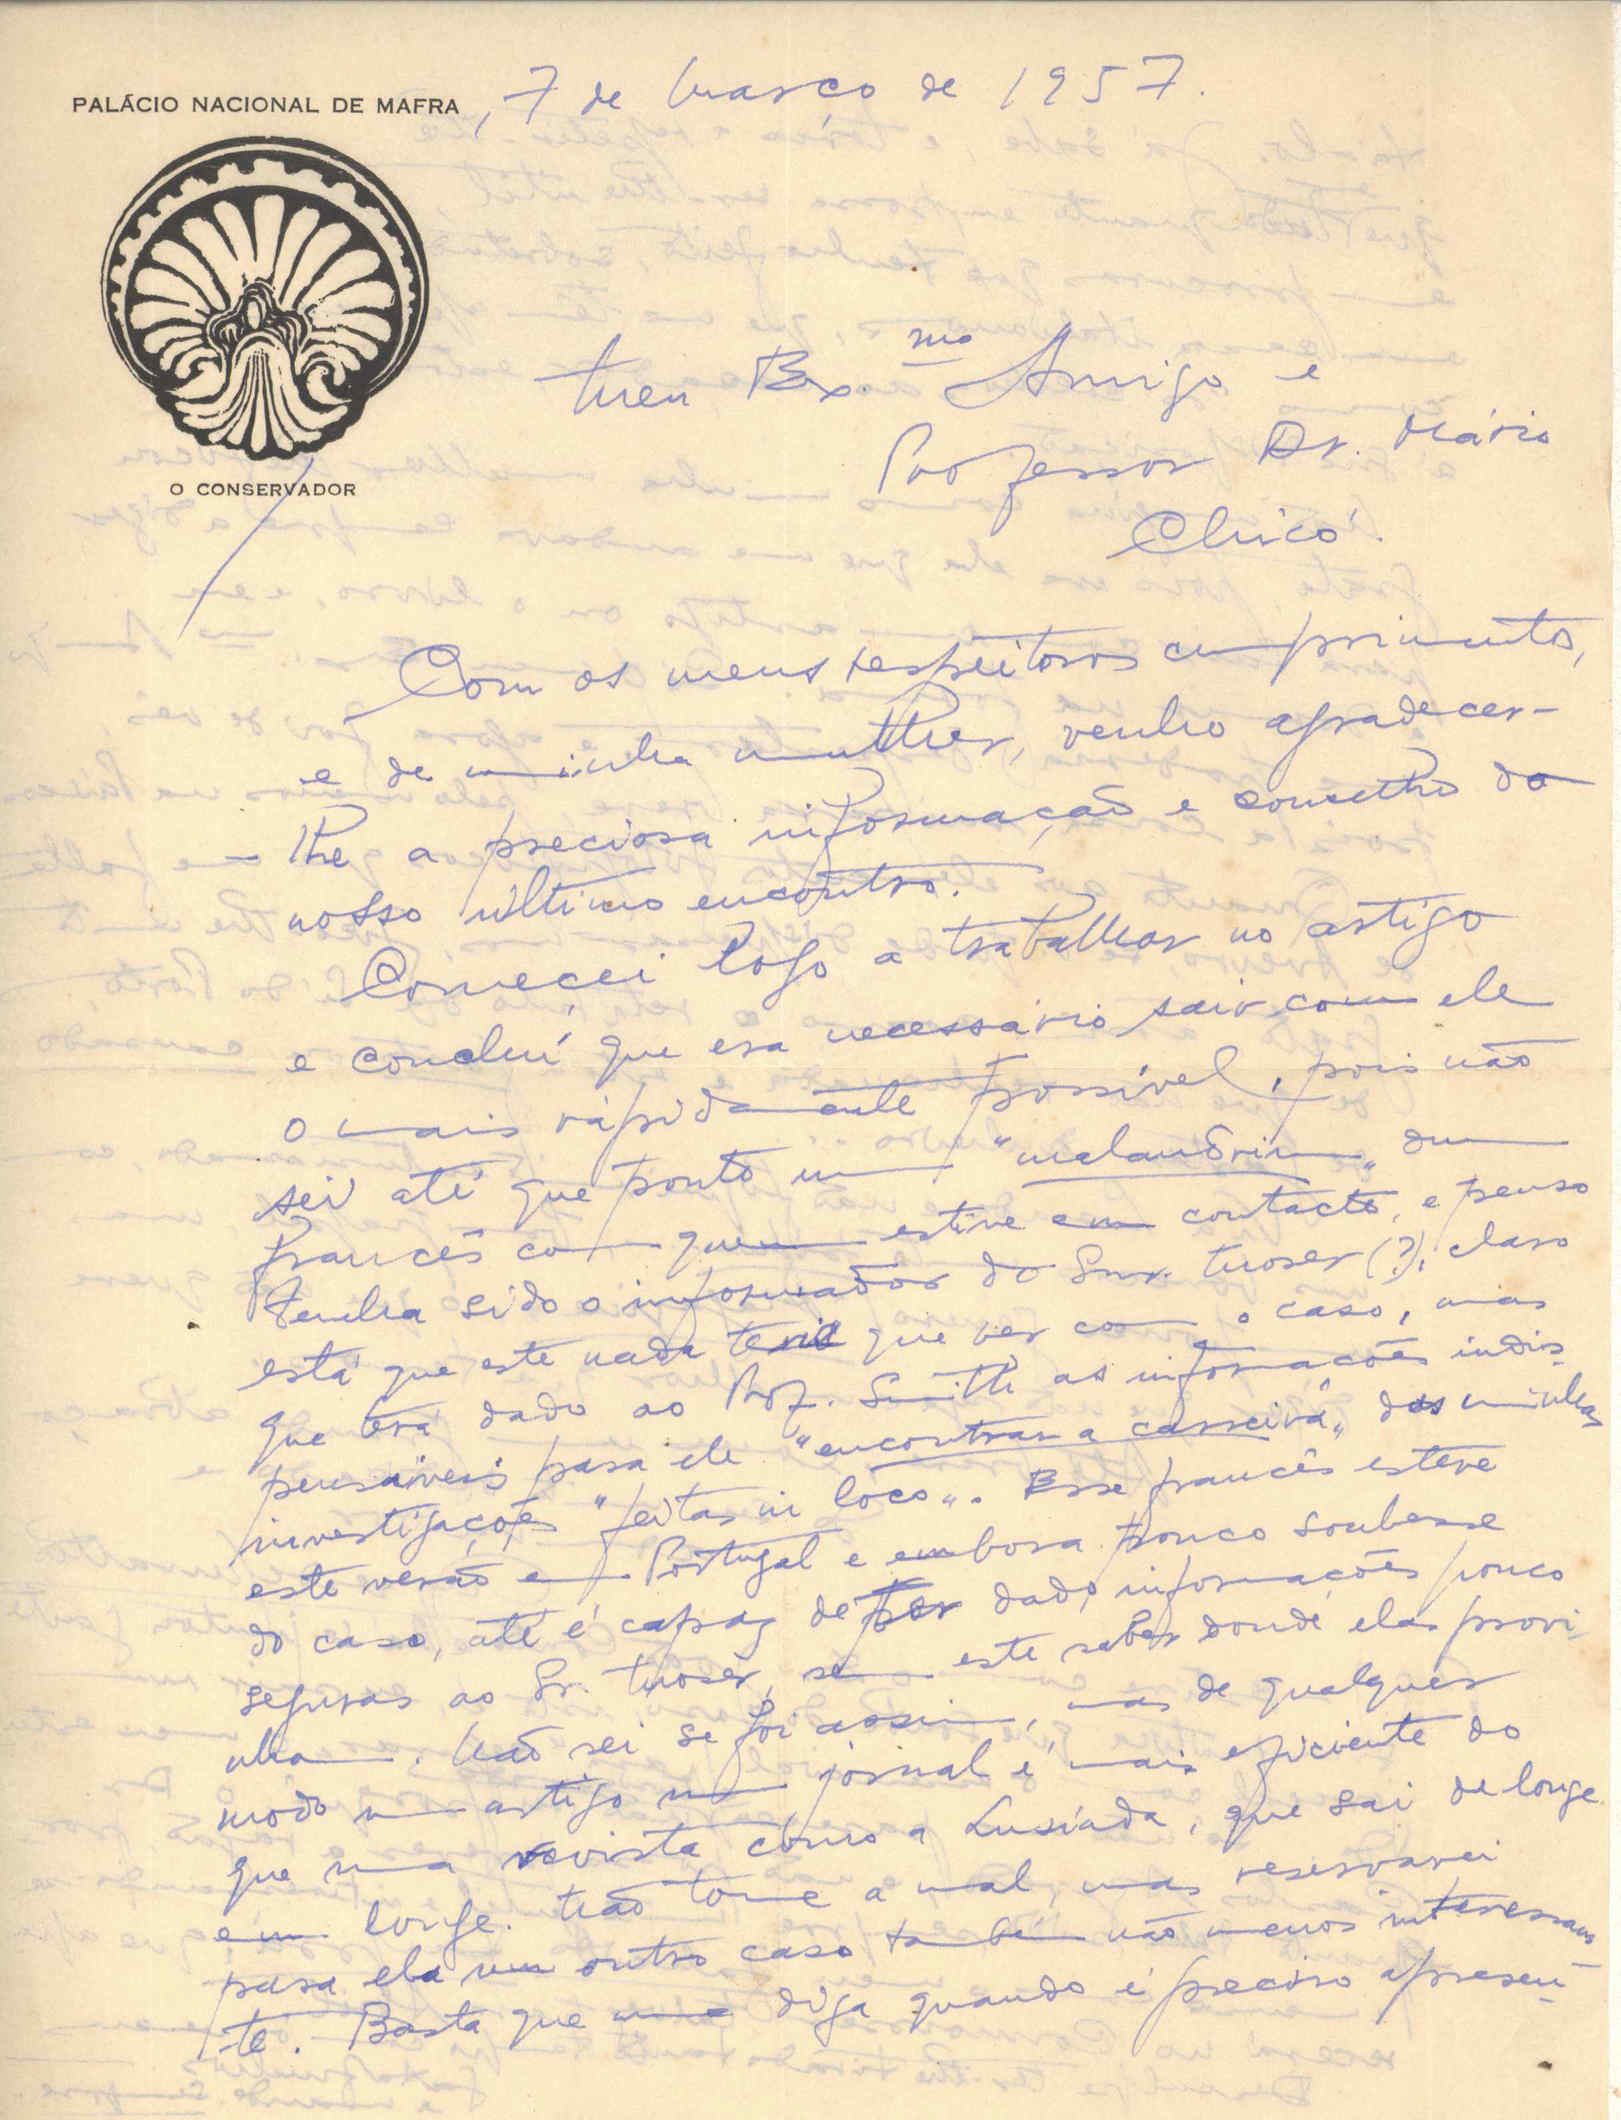 PALÁCIO NACIONAL DE MAFRA, 7 de Março de 1957.
O CONSERVADOR
Meu Ex.mo Amigo e
Professor Dr. Mário
Chicó.
Com os meus respeitosos cumprimentos,
e de minha mulher, venho agradecer-
-lhe a preciosa informação e conselho do
nosso último encontro.
Começei logo a trabalhar no artigo
e concluí que era necessário sair com ele
o mais ràpidamente possível, pois não
sei até que ponto um "malandrim" dum
francês com quem estive em contacto, e penso
tenha sido o informador do Snr. Moser (?), claro
está que este nada tem que ver com o caso, mas
que terá dado ao Prof. Smith as informações indis-
pensáveis para ele "encontrar a carreira" das minhas
investigações "feitas in loco". Esse francês esteve
este verão em Portugal e embora pouco soubesse
do caso, até é capaz de ter dado informações pouco
seguras ao Sr. Moser, sem este saber donde elas provi-
nham. Não sei se foi assim, mas de qualquer
modo um artigo num jornal é mais eficiente do
que uma revista como a Lusíada, que sai de longe
em longe. Não tome a mal, mas reservarei
para ela um outro caso também não menos interessan-
te. Basta que me diga quando é preciso apresen-